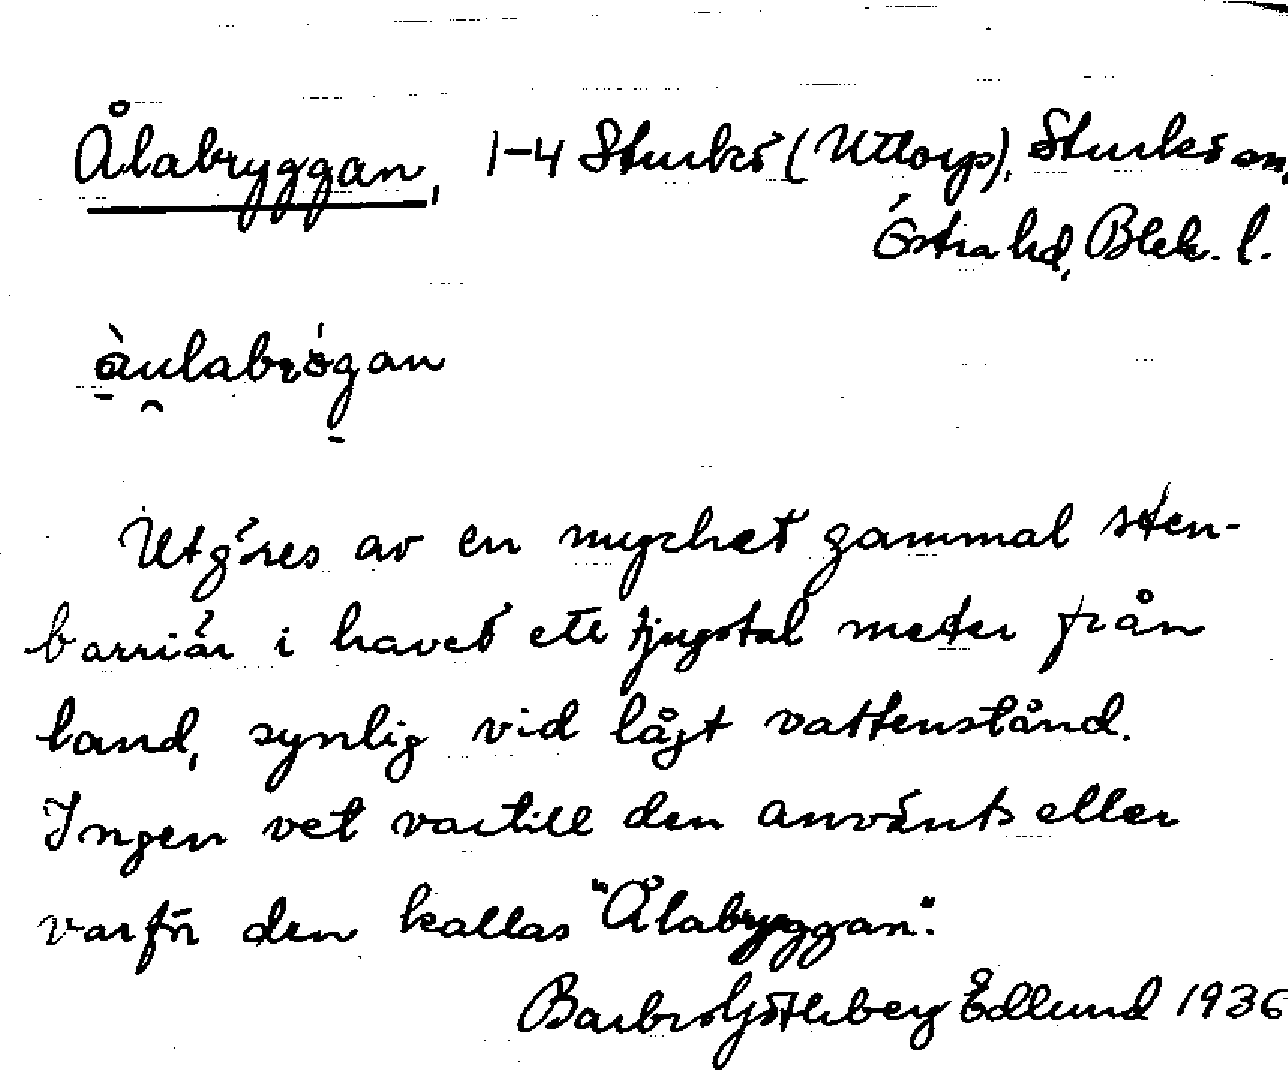 Ålabryggan, 1-4 Sturkö (Uttorp), Sturkö sn,
Östra hd, Blek. l.
àulabrögan
Utgöres av en mycket gammal sten-
barriär i havet ett tjugotal meter från
land, synlig vid lågt vattenstånd.
Ingen vet vartill den använts eller
varför den kallas "Ålabryggan".
Barbro Götherberg Edlund 1936